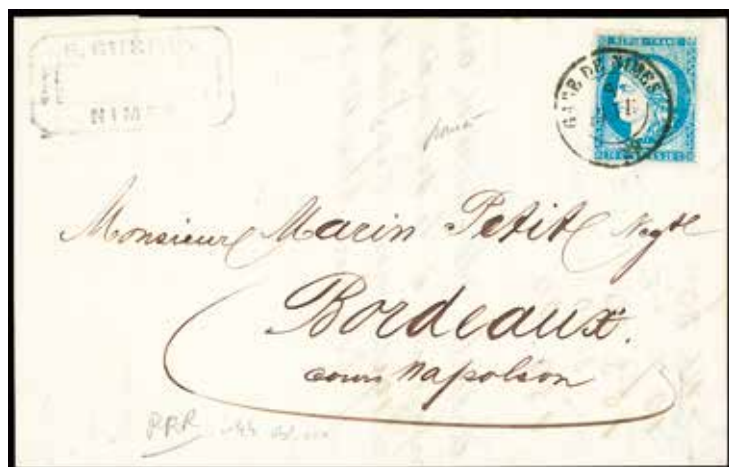 NIMES
REPUB. FRANC.
GARE DE NIMES
Monsieur Marin Petit Negt
Bordeaux.
cours Napoléon
RRR